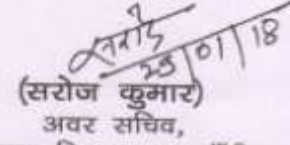 सरोज
23/01/18
(सरोज कुमार)
अवर सचिव,